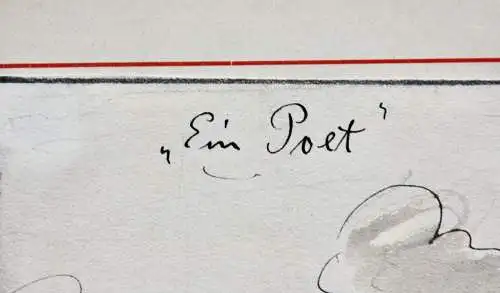 „Ein Poet"